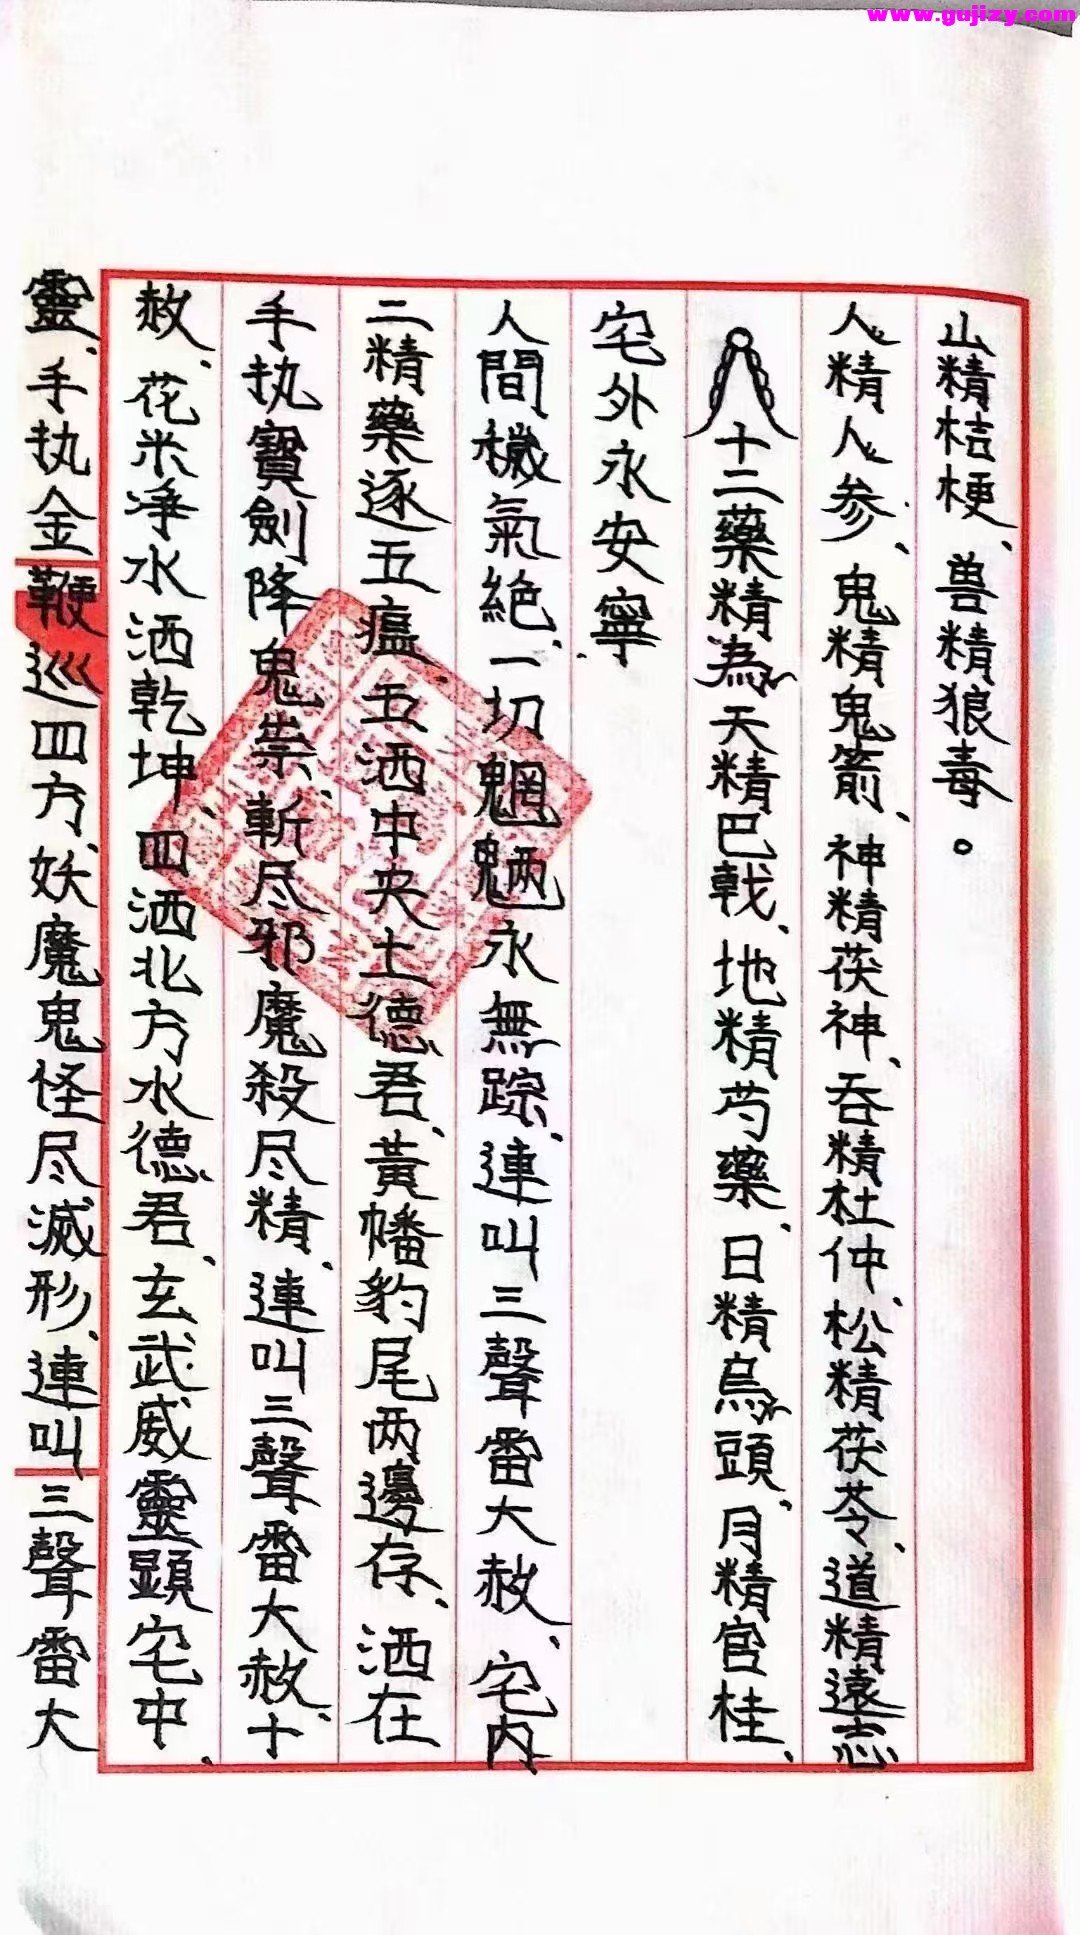 www.gujizy.com
靈、手执金鞭巡四方、妖魔鬼怪尽滅形、連叫三聲雷大
赦、花米净水洒乾坤、四洒北方水德君、玄武威靈顕宅中、
手执寶劍降鬼祟、斬尽邪魔殺尽精、連叫三聲雷大赦、十
二精藥逐五瘟、五洒中央土德君、黃幡豹尾两邊存、洒在
人間穢氣絶、一切魍魉永無踪、連叫三聲雷大赦、宅内
宅外永安寧
十二藥精為天精巴戟、地精芍藥、日精烏頭、月精官桂、
人精人参、鬼精鬼箭、神精茯神、吞精杜仲、松精茯苓、道精遠志
山精桔梗、兽精狼毒。